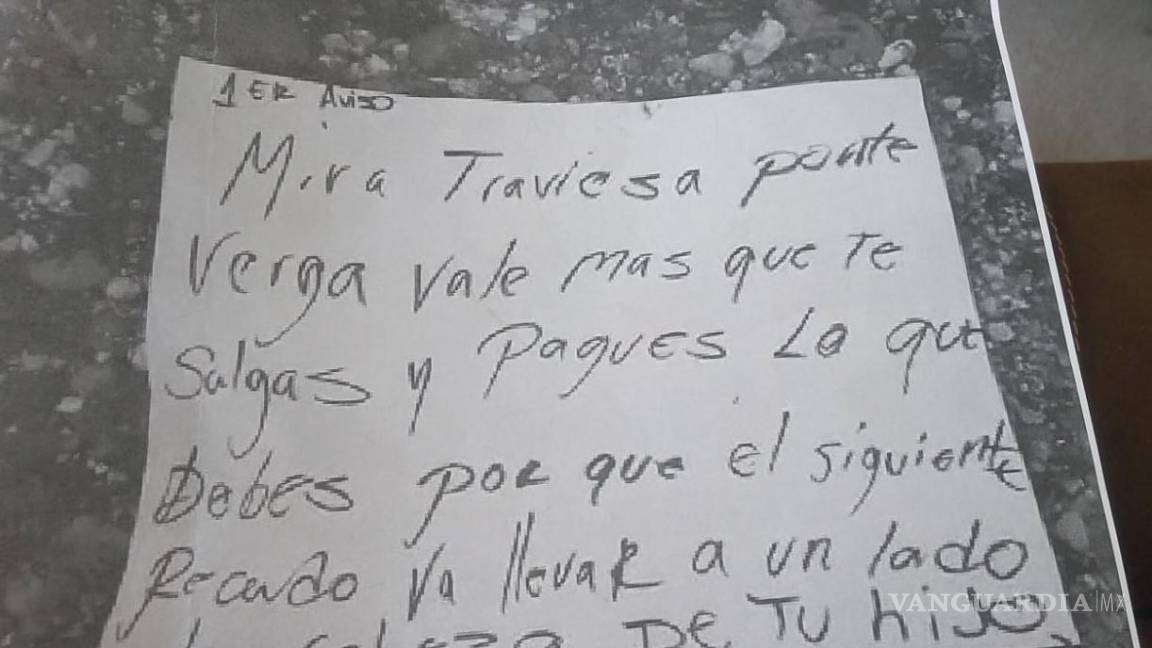 1ER Aviso
Mira Traviesa ponte
Verga Vale mas que Te
Salgas y Pagues La que
Debes por que el siguiente
Recado Va llevar a un lado
DE TU hijo,
VANGUARDIA|MX